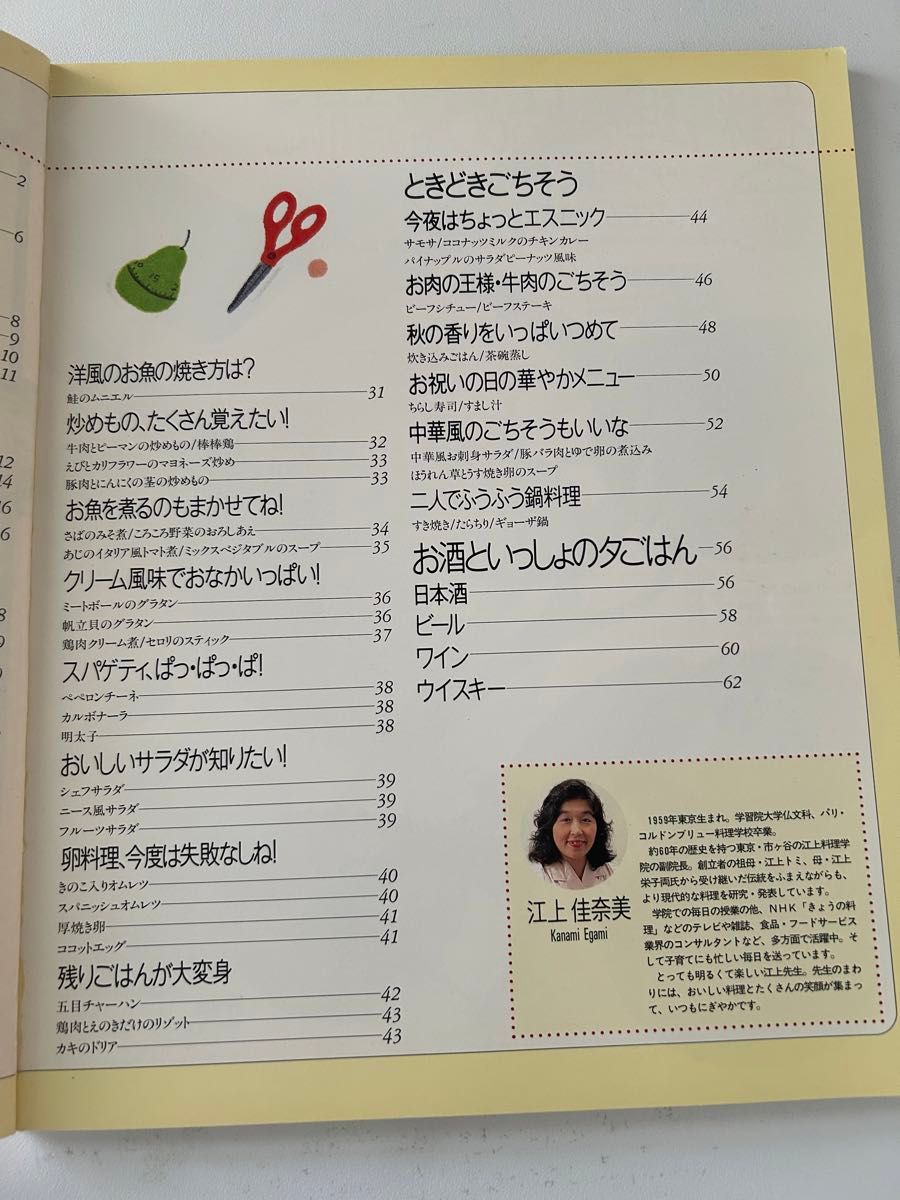 2
6
8
9
10
11
12
14
16
6
8
9
洋風のお魚の焼き方は?
鮭のムニエル 31
炒めもの、たくさん覚えたい!
牛肉とピーマンの炒めもの/棒棒鶏 32
えびとカリフラワーのマヨネーズ炒め 33
豚肉とにんにくの茎の炒めもの 33
お魚を煮るのもまかせてね!
さばのみそ煮/ころころ野菜のおろしあえ 34
あじのイタリア風トマト煮/ミックスベジタブルのスープ 35
クリーム風味でおなかいっぱい!
ミートボールのグラタン 36
帆立貝のグラタン 36
鶏肉クリーム煮/セロリのスティック 37
スパゲティ、ぱっ・ぱっ・ぱ!
ペペロンチーネ 38
カルボナーラ 38
明太子 38
おいしいサラダが知りたい!
シェフサラダ 39
ニース風サラダ 39
フルーツサラダ 39
卵料理、今度は失敗なしね!
きのこ入りオムレツ 40
スパニッシュオムレツ 40
厚焼き卵 41
ココットエッグ 41
残りごはんが大変身
五目チャーハン 42
鶏肉とえのきだけのリゾット 43
カキのドリア 43
ときどきごちそう
今夜はちょっとエスニック 44
サモサ/ココナッツミルクのチキンカレー
パイナップルのサラダピーナッツ風味
お肉の王様・牛肉のごちそう 46
ビーフシチュー/ビーフステーキ
秋の香りをいっぱいつめて 48
炊き込みごはん/茶碗蒸し
お祝いの日の華やかメニュー 50
ちらし寿司/すまし汁
中華風のごちそうもいいな 52
中華風お刺身サラダ/豚バラ肉とゆで卵の煮込み
ほうれん草とうす焼き卵のスープ
二人でふうふう鍋料理 54
すき焼き/たらちり/ギョーザ鍋
お酒といっしょの夕ごはん 56
日本酒 56
ビール 58
ワイン 60
ウイスキー 62
江上 佳奈美
Kanami Egami
1959年東京生まれ。学習院大学仏文科、パリ・
コルドンブリュー料理学校卒業。
約60年の歴史を持つ東京・市ヶ谷の江上料理学
院の副院長。創立者の祖母・江上トミ、母・江上
栄子両氏から受け継いだ伝統をふまえながらも、
より現代的な料理を研究・発表しています。
学院での毎日の授業の他、NHK「きょうの料
理」などのテレビや雑誌、食品・フードサービス
業界のコンサルタントなど、多方面で活躍中。そ
して子育てにも忙しい毎日を送っています。
とっても明るくて楽しい江上先生。先生のまわ
りには、おいしい料理とたくさんの笑顔が集まっ
て、いつもにぎやかです。